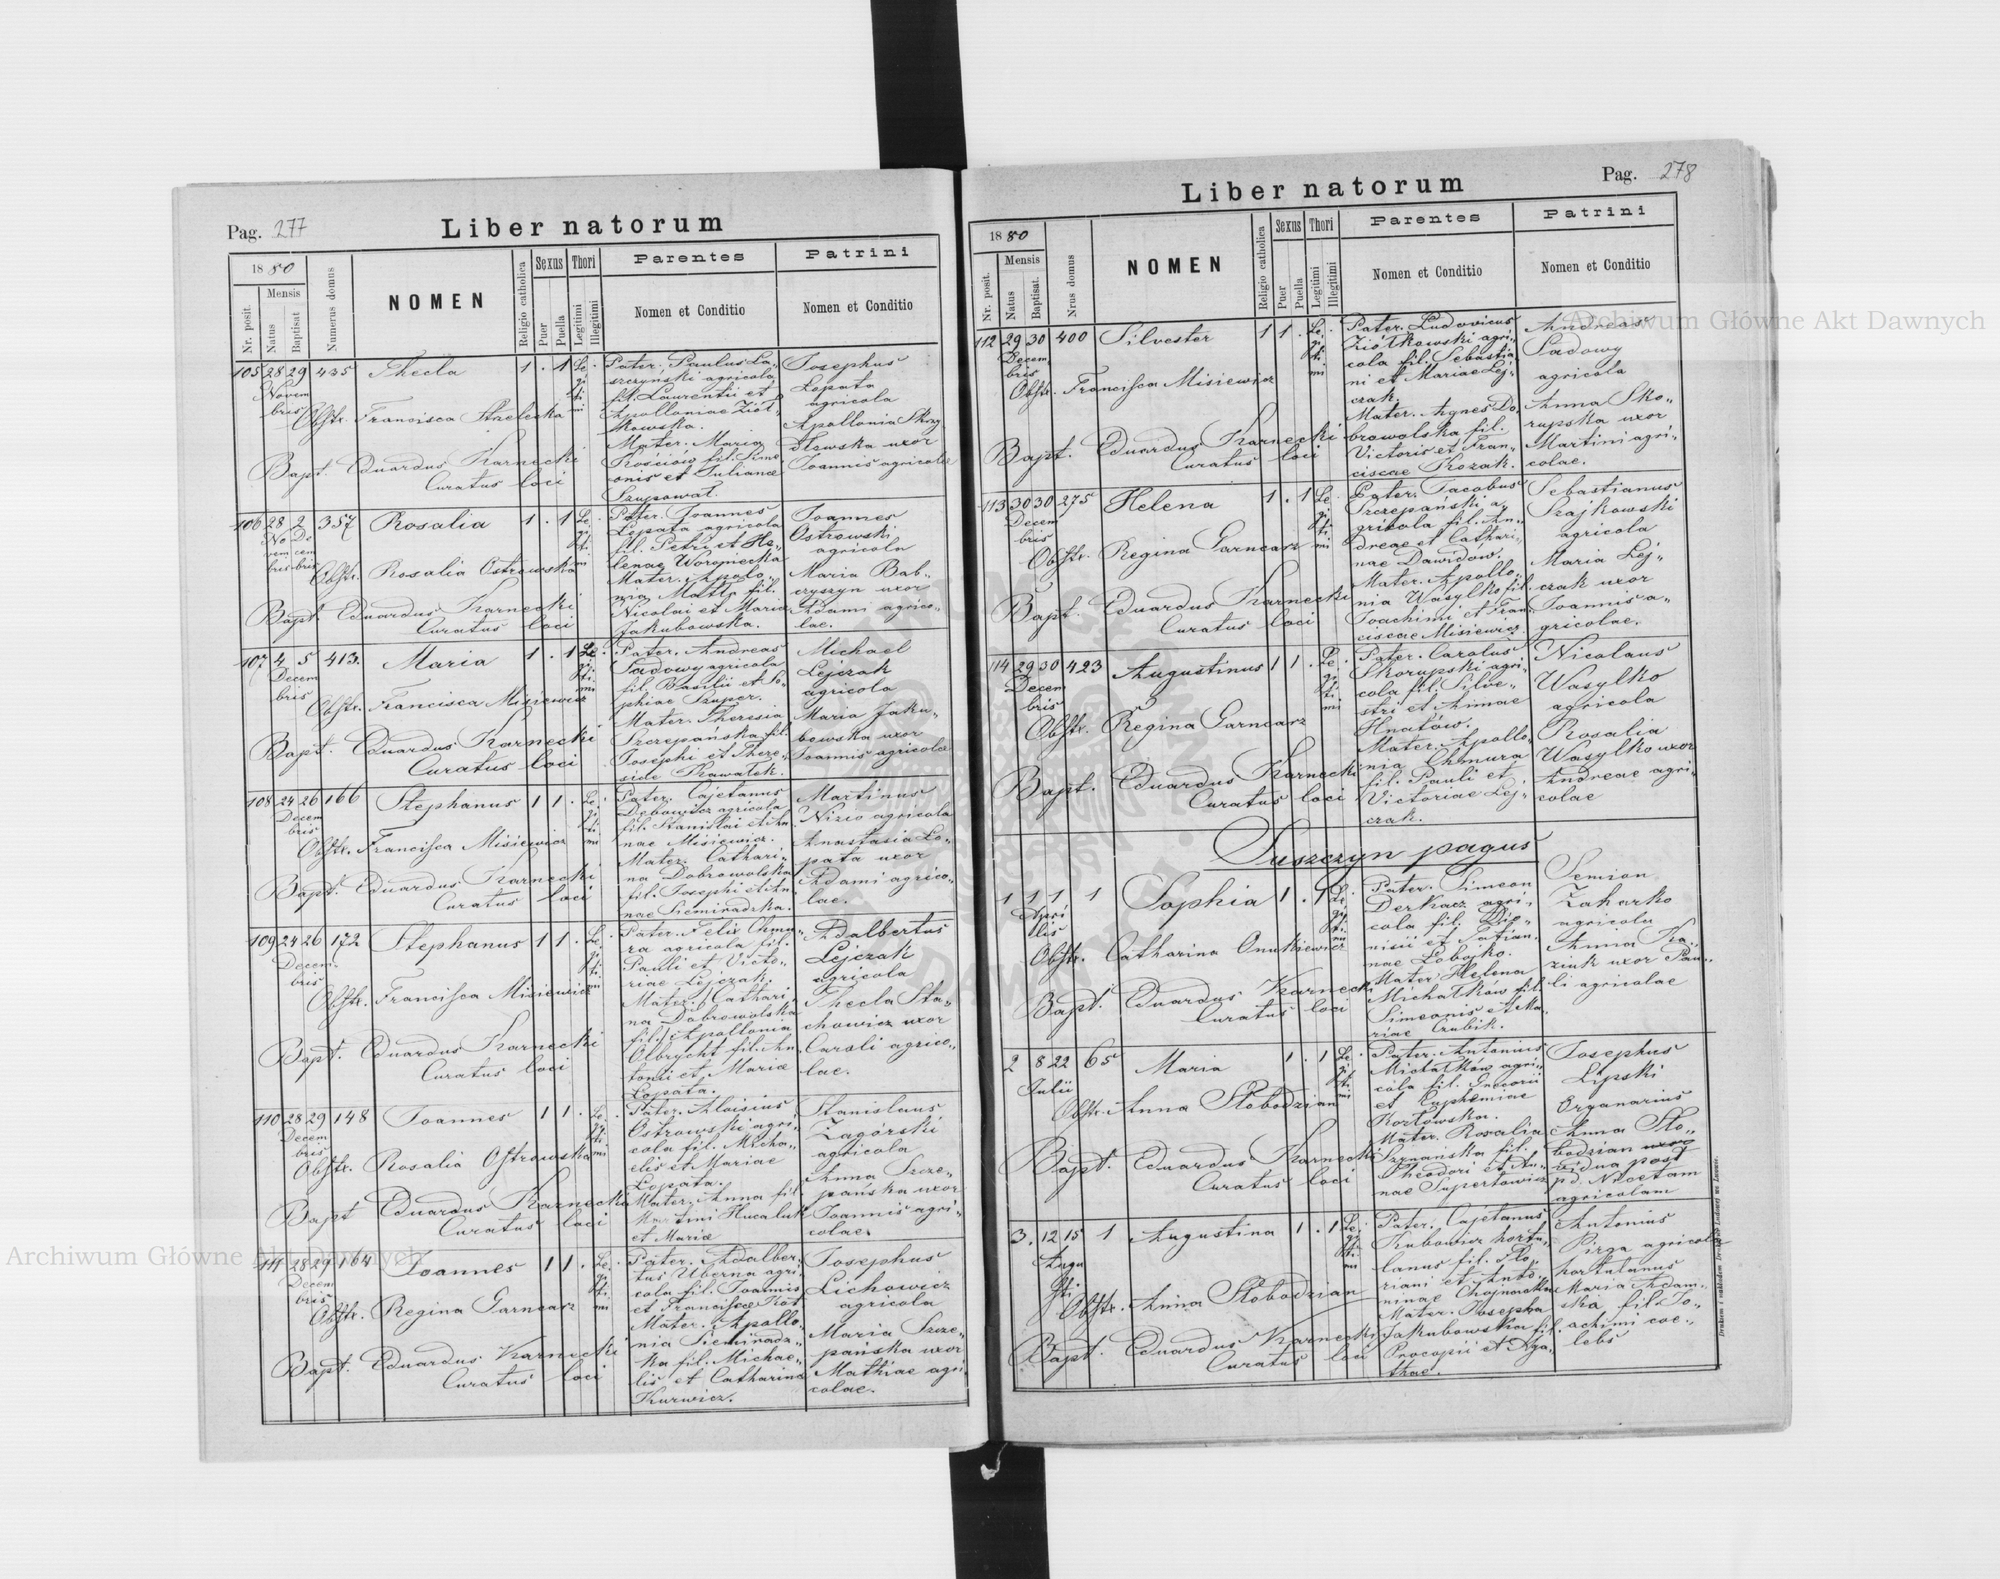 Pag. 277
Liber natorum
1880
Nr. posit.
Mensis
Natus
Baptisat
Numerus domus
NOMEN
Religio catholica
Sexus
Puer
Puella
Thori
Legitimi
Illegitimi
Parentes
Nomen et Conditio
Patrini
Nomen et Conditio
105 28 29 435 Thecla 1 . 1 Le- .
Novem
bris
gi
ti
mi
Obstr. Francisca Strelecka
Bapt. Eduardus Karnecki
Curatus loci
Pater. Paulus La-
szczynski agricola
fil. Laurentii et
Apolloniae Ziół-
kowska.
Mater. Maria
Kościów fil. Sime-
onis et Julianae
Szupowat.
Josephus
Łopata
agricola
Apollonia Skrzy
dlewska uxor
Joannis agricolae
106 28 2 357 Rosalia 1 . 1 Le- .
No De
vem cem
bris bris
gi
ti
mi
Obstr. Rosalia Ostrowska
Bapt. Eduardus Karnecki
Curatus loci
Pater. Joannes
Łopata agricola
fil. Petri et He-
lenae Woroniecka
Mater. Apolo-
nia fil.
Nicolai et Maria
Jakubowska.
Joannes
Ostrowski
agricola
Maria Bab-
czyszyn uxor
Adami agrico-
lae.
107 4 5 413. Maria 1 . 1 Le- .
Decem
bris
gi
ti
mi
Obstr. Francisca Misiewicz
Bapt. Eduardus Karnecki
Curatus loci
Pater. Andreas
Sadowy agricola
fil. Basilii et So-
phiae Szuper.
Mater. Theresia
Szczepańska fil.
Josephi et There-
siae Kawałek.
Michael
Lejczak
agricola
Maria Jaku-
bowska uxor
Joannis agricolae
108 24 26 166 Stephanus 1 1 . Le- .
Decem
bris
gi
ti
mi
Obstr. Francisca Misiewicz
Bapt. Eduardus Karnecki
Curatus loci
Pater. Cajetanus
Dębowicz agricola
fil. Stanislai et An
nae Misiewicz.
Mater. Cathari-
na Dobrowolska
fil. Josephi et An-
nae Siemiradzka.
Martinus
Nizio agricola
Anastasia Ło-
pata uxor
Adami agrico-
lae.
109 24 26 172 Stephanus 1 1 . Le- .
Decem
bris
gi
ti
mi
Obstr. Francisca Misiewicz
Bapt. Eduardus Karnecki
Curatus loci
Pater. Felix Chmu-
ra agricola fil.
Pauli et Victo-
riae Lejczak.
Mater. Cathari-
na Dobrowolska
fil. Apollonia
Olbrycht fil. An-
tonii et Maria
Łopata.
Adalbertus
Lejczak
agricola
Thecla Sta-
chowicz uxor
Caroli agrico-
lae.
110 28 29 148 Joannes 1 1 . Le- .
Decem
bris
gi
ti
mi
Obstr. Rosalia Ostrowska
Bapt Eduardus Karnecki
Curatus loci
Pater. Aloisius
Ostrowski agri-
cola fil. Micha-
elis et Mariae
Łopata.
Mater. Anna fil.
Martini Hucaluk
et Mariae
Stanislaus
Zagórski
agricola
Anna Szcze-
pańska uxor
Joannis agri-
colae.
111 28 29 164 Joannes 1 1 . Le- .
Decem
bris
gi
ti
mi
Obstr. Regina Garncarz
Bapt. Eduardus Karnecki
Curatus loci
Pater. Adalber-
tus Uberna agri-
cola fil. Joannis
et Francisca
Mater. Apollo-
nia Siemiradz-
ka fil. Michae-
lis et Catharina
Kurwicz.
Josephus
Lichowicz
agricola
Maria Szcze-
pańska uxor
Mathiae agri-
colae.
Pag. 278
Liber natorum
1880
Nr. posit.
Mensis
Natus
Baptisat.
Nrus domus
NOMEN
Religio catholica
Sexus
Puer
Puella
Thori
Legitimi
Illegitimi
Parentes
Nomen et Conditio
Patrini
Nomen et Conditio
112 29 30 400 Silvester 1 1 . Le- .
Decem
bris
gi
ti
mi
Obstr. Francisca Misiewicz
Bapt. Eduardus Karnecki
Curatus loci
Pater. Ludovicus
Ziółkowski agri-
cola fil. Sebastia-
ni et Mariae Lej-
czak.
Mater. Agnes Do-
browolska fil.
Victoris et Fran-
ciscae Kozak.
Andreas
Sadowy
agricola
Anna Sko-
rupska uxor
Martini agri-
colae.
113 30 30 275 Helena 1 . 1 Le- .
Decem
bris
gi
ti
mi
Obstr. Regina Garncarz
Bapt. Eduardus Karnecki
Curatus loci
Pater. Jacobus
Szczepański a-
gricola fil. An-
dreae et Cathari-
nae Dawidów.
Mater. Apollo-
nia Wasylko fil.
Joachimi et Fran-
ciscae Misiewicz.
Sebastianus
Szajkowski
agricola
Maria Lej-
czak uxor
Joannis a-
gricolae.
114 29 30 423 Augustinus 1 1 . Le- .
Decem
bris
gi
ti
mi
Obstr. Regina Garncarz
Bapt. Eduardus Karnecki
Curatus loci
Pater. Carolus
Skorupski agri-
cola fil. Silve-
stri et Annae
Hnatów.
Mater. Apollo-
nia Chmura
fil. Pauli et
Victoriae Lej-
czak.
Nicolaus
Wasylko
agricola
Rosalia
Wasylko uxor
Andreae agri-
colae
Suszczyn pagus
1 1 1 1 Sophia 1 . 1 Le- .
Apri
lis
gi
ti
mi
Obstr. Catharina Onukiewicz
Bapt. Eduardus Karnecki
Curatus loci
Pater. Simeon
Derkacz agri-
cola fil. Dio-
nisii et Tatian-
nae Łobojko.
Mater Helena
Michałków fil
Simeonis et Ma-
riae Czubik.
Semion
Zaharko
agricola
Anna Ka-
ziuk uxor Pau-
li agricolae
2 8 22 65 Maria 1 . 1 Le- .
Julii
gi
ti
mi
Obstr. Anna Słobodzian
Bapt. Eduardus Karnecki
Curatus loci
Pater. Antonius
agri-
cola fil. Gregorii
et Euphemiae
Kozłowska.
Mater. Rosalia
Szmańska fil.
Theodori et An-
nae Supertowicz
Josephus
Lipski
Organarius
Anna Sło-
bodzian uxor
vidua post
pd. Nicetam
agricolam
3. 12 15 1 Augustina 1 . 1 Le- .
Augu
sti
gi
ti
mi
Obstr. Anna Słobodzian
Bapt. Eduardus Karnecki
Curatus loci
Pater. Cajetanus
Kubowicz hortu-
lanus fil. Flo-
riani et Anto-
ninae Chojnacka
Mater. Josepha
Jakubowska fil.
Procopii et Aga-
thae.
Antonius
Pirga agricola
hortulanus
Maria Adam-
ska fil. Jo-
achimi coe-
lebs
Drukiem i nakładem Drukarni Ludowej we Lwowie.
Archiwum Główne Akt Dawnych
Archiwum Główne Akt Dawnych